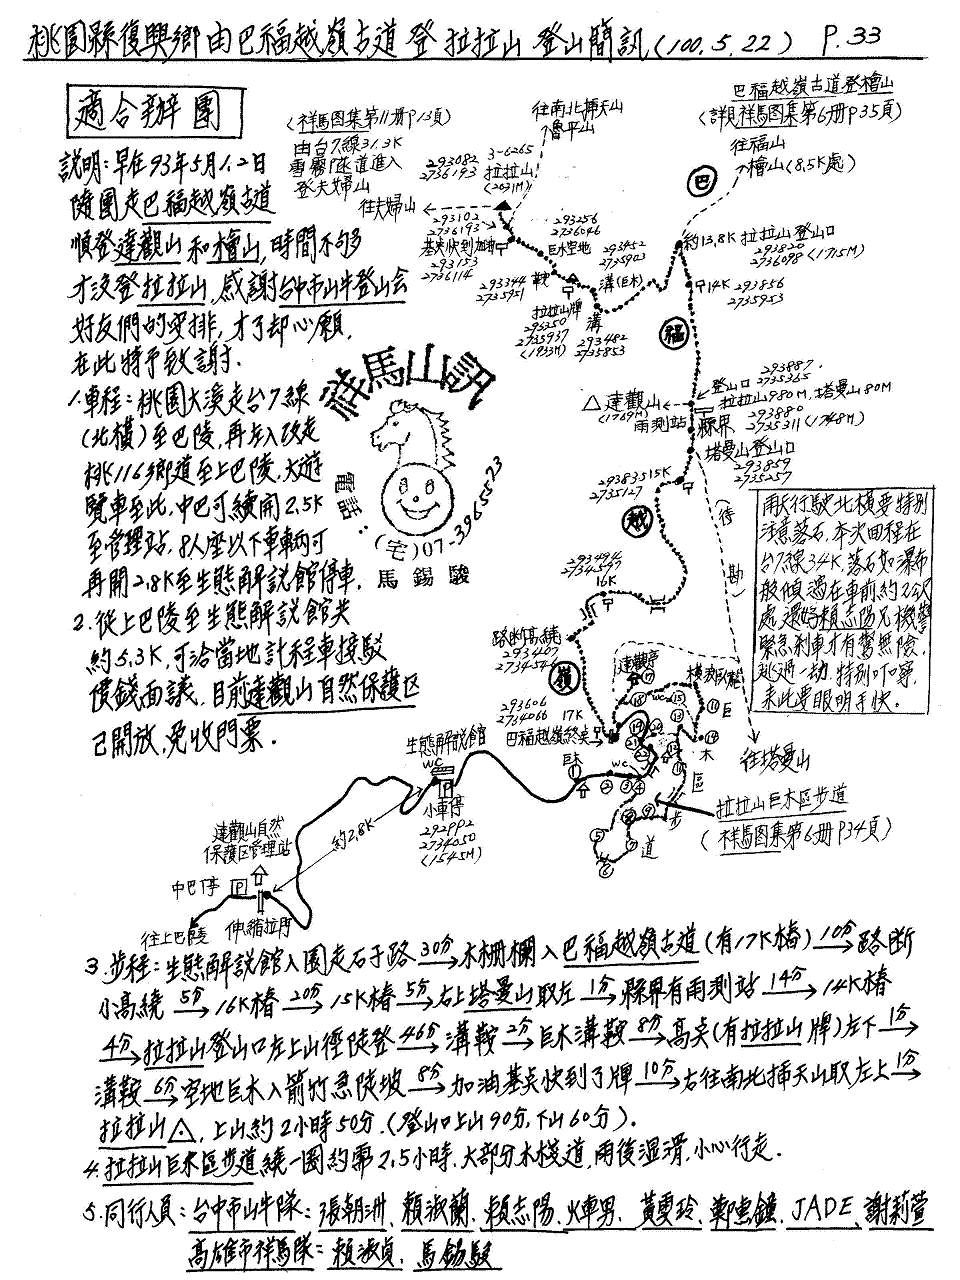 桃園縣復興鄉由巴福越嶺古道登拉拉山登山簡訊(100.5.22) P.33
適合辦團
說明:早在93年5月1.2日
隨團走巴福越嶺古道
順登達觀山和檜山,時間不夠
才沒登拉拉山,感謝台中市山牛登山会
好友們的安排,才了却心願.
在此特予致謝.
1.車程:桃園大溪走台7線
(北橫)至巴陵,再左入改走
桃116鄉道至上巴陵,大遊
覽車至此,中巴可續開2.5K
至管理站,8人座以下車輛可
再開2.8K至生態解說館停車.
2.從上巴陵至生態解說館共
約5.3K,可洽當地計程車接駁
價錢面議.目前達觀山自然保護区
己開放,免收門票.
(祥馬图集第11册P13頁)
由台7線31.3K
雪霧鬧隧道進入
登夫婦山
往夫婦山
往南北插天山
魯平山
巴福越嶺古道登檜山
(詳見祥馬图集第6册P35頁)
往福山
檜山(8.5K處)
293082
2736193
3-6265
拉拉山
(2031M)
293102
2736193
基点快到加油
293153
2736114
293256
2736046
巨木空地
293344
2735951
鞍
293452
2735943
溝(巨木)
拉拉山牌
293350
2735937
(1933M)
溝
293482
2735853
巴
約13.8K 拉拉山登山口
293820
2736098 (1715M)
14K 293856
2735953
福
293887
2735365
登山口
拉拉山980M,塔曼山80M
△達觀山
(1769M)
雨測站
縣界
293880
2735311 (1748M)
塔曼山登山口
293859
2735257
293835 15K
2735127
越
(待勘)
16K
路斷高繞
293407
嶺
293606
2734066
17K
巴福越嶺終点
達觀亭
橫瀉臥龍
巨木區步道
往塔曼山
拉拉山巨木區步道
(祥馬图集第6册P34頁)
祥馬山訊
電話:(宅)07-3965523
馬錫駿
雨天行駛北橫要特別
注意落石,本次回程在
台7線34K,落石如瀑布
般傾瀉在車前約2公尺
處,還好賴志陽兄機警
緊急刹車才有驚無險,
逃過一劫,特別叮嚀,
來此要眼明手快.
生態解說館
WC
P
小車停
292992
2734050
(1545M)
巨木
WC
約2.8K
達觀山自然
保護区管理站
中巴停 P
往上巴陵
伸縮拉門
3.步程:生態解說館入園走石子路 30分→木柵欄入巴福越嶺古道(有17K樁) 10分→路断
小高繞 5分→16K樁 20分→15K樁 5分→右上塔曼山取左 1分→縣界有雨測站 14分→14K樁
4分→拉拉山登山口左上山徑陡登 46分→溝鞍 2分→巨木溝鞍 8分→高点(有拉拉山牌)左下 1分→
溝鞍 6分→空地巨木入箭竹急陡坡 8分→加油基点快到了牌 10分→右往南北插天山取左上 1分→
拉拉山△,上山約2小時50分.(登山口上山90分,下山60分).
4.拉拉山巨木區步道繞一圈約需2.5小時.大部分木棧道,雨後濕滑,小心行走.
5.同行人員:台中市山牛隊:張朝洲、賴淑蘭、賴志陽、火車男、黃雯玲、鄭惠鐘、JADE、謝莉萱
高雄市祥馬隊:賴淑貞、馬錫駿